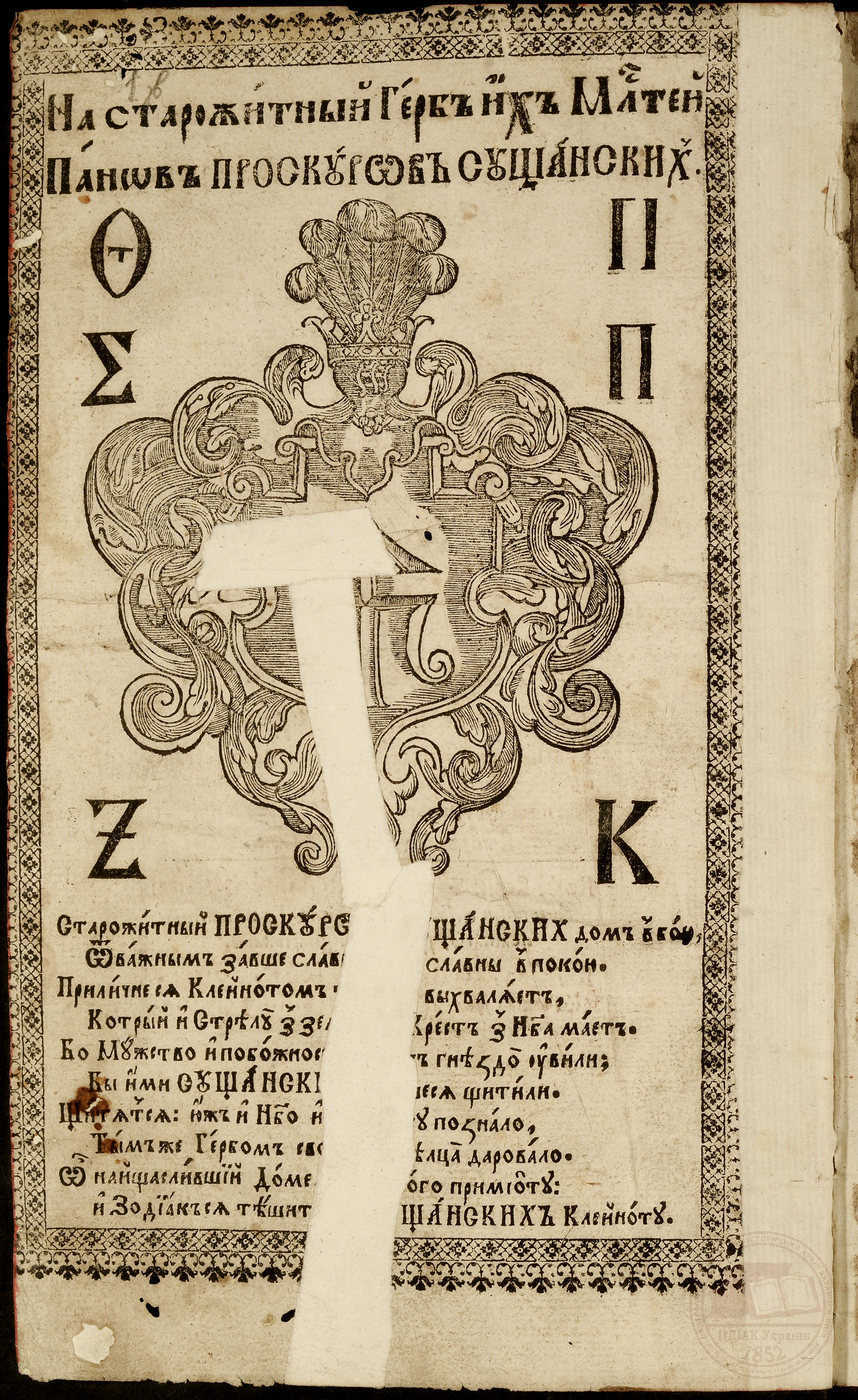 На старожи́тный Ге́рбъ и҆́хъ Мл҃тей
Па́нѡвъ ПРОСКꙊ́РѠВЪ СꙊЩА́НСКИХ.
Ѳ П
т
Σ П
Z К
Старожи́тный ПРОСКꙊ́РѠ ЩА́НСКИХ домъ
Ѿва́жнымъ за́вше сла́в сла́вны в покон.
Прили́чне ся Клейно́томъ выхваля́етъ,
Котры́й и҆ Стрѣлꙋ̀ з Кре́стъ з Нб҃а ма́етъ.
Бо Мꙋ́жество и҆ побо́жнос гнѣздо ᲂу҆ви́ли;
Бы и҆́ми СꙊЩА́НСКИ щити́ли.
Щитя́тся: и҆́жъ и҆ Нб҃о и҆ позна́ло,
Ты́мъ же Ге́рбомъ све дарова́ло.
Ѿ найщасли́вшїй До́ме ого примїо́тꙋ:
и҆ Зодїа́къ ся тѣ́шит ЩА́НСКИХЪ Клейно́тꙋ.
ЦДІАК України
1852